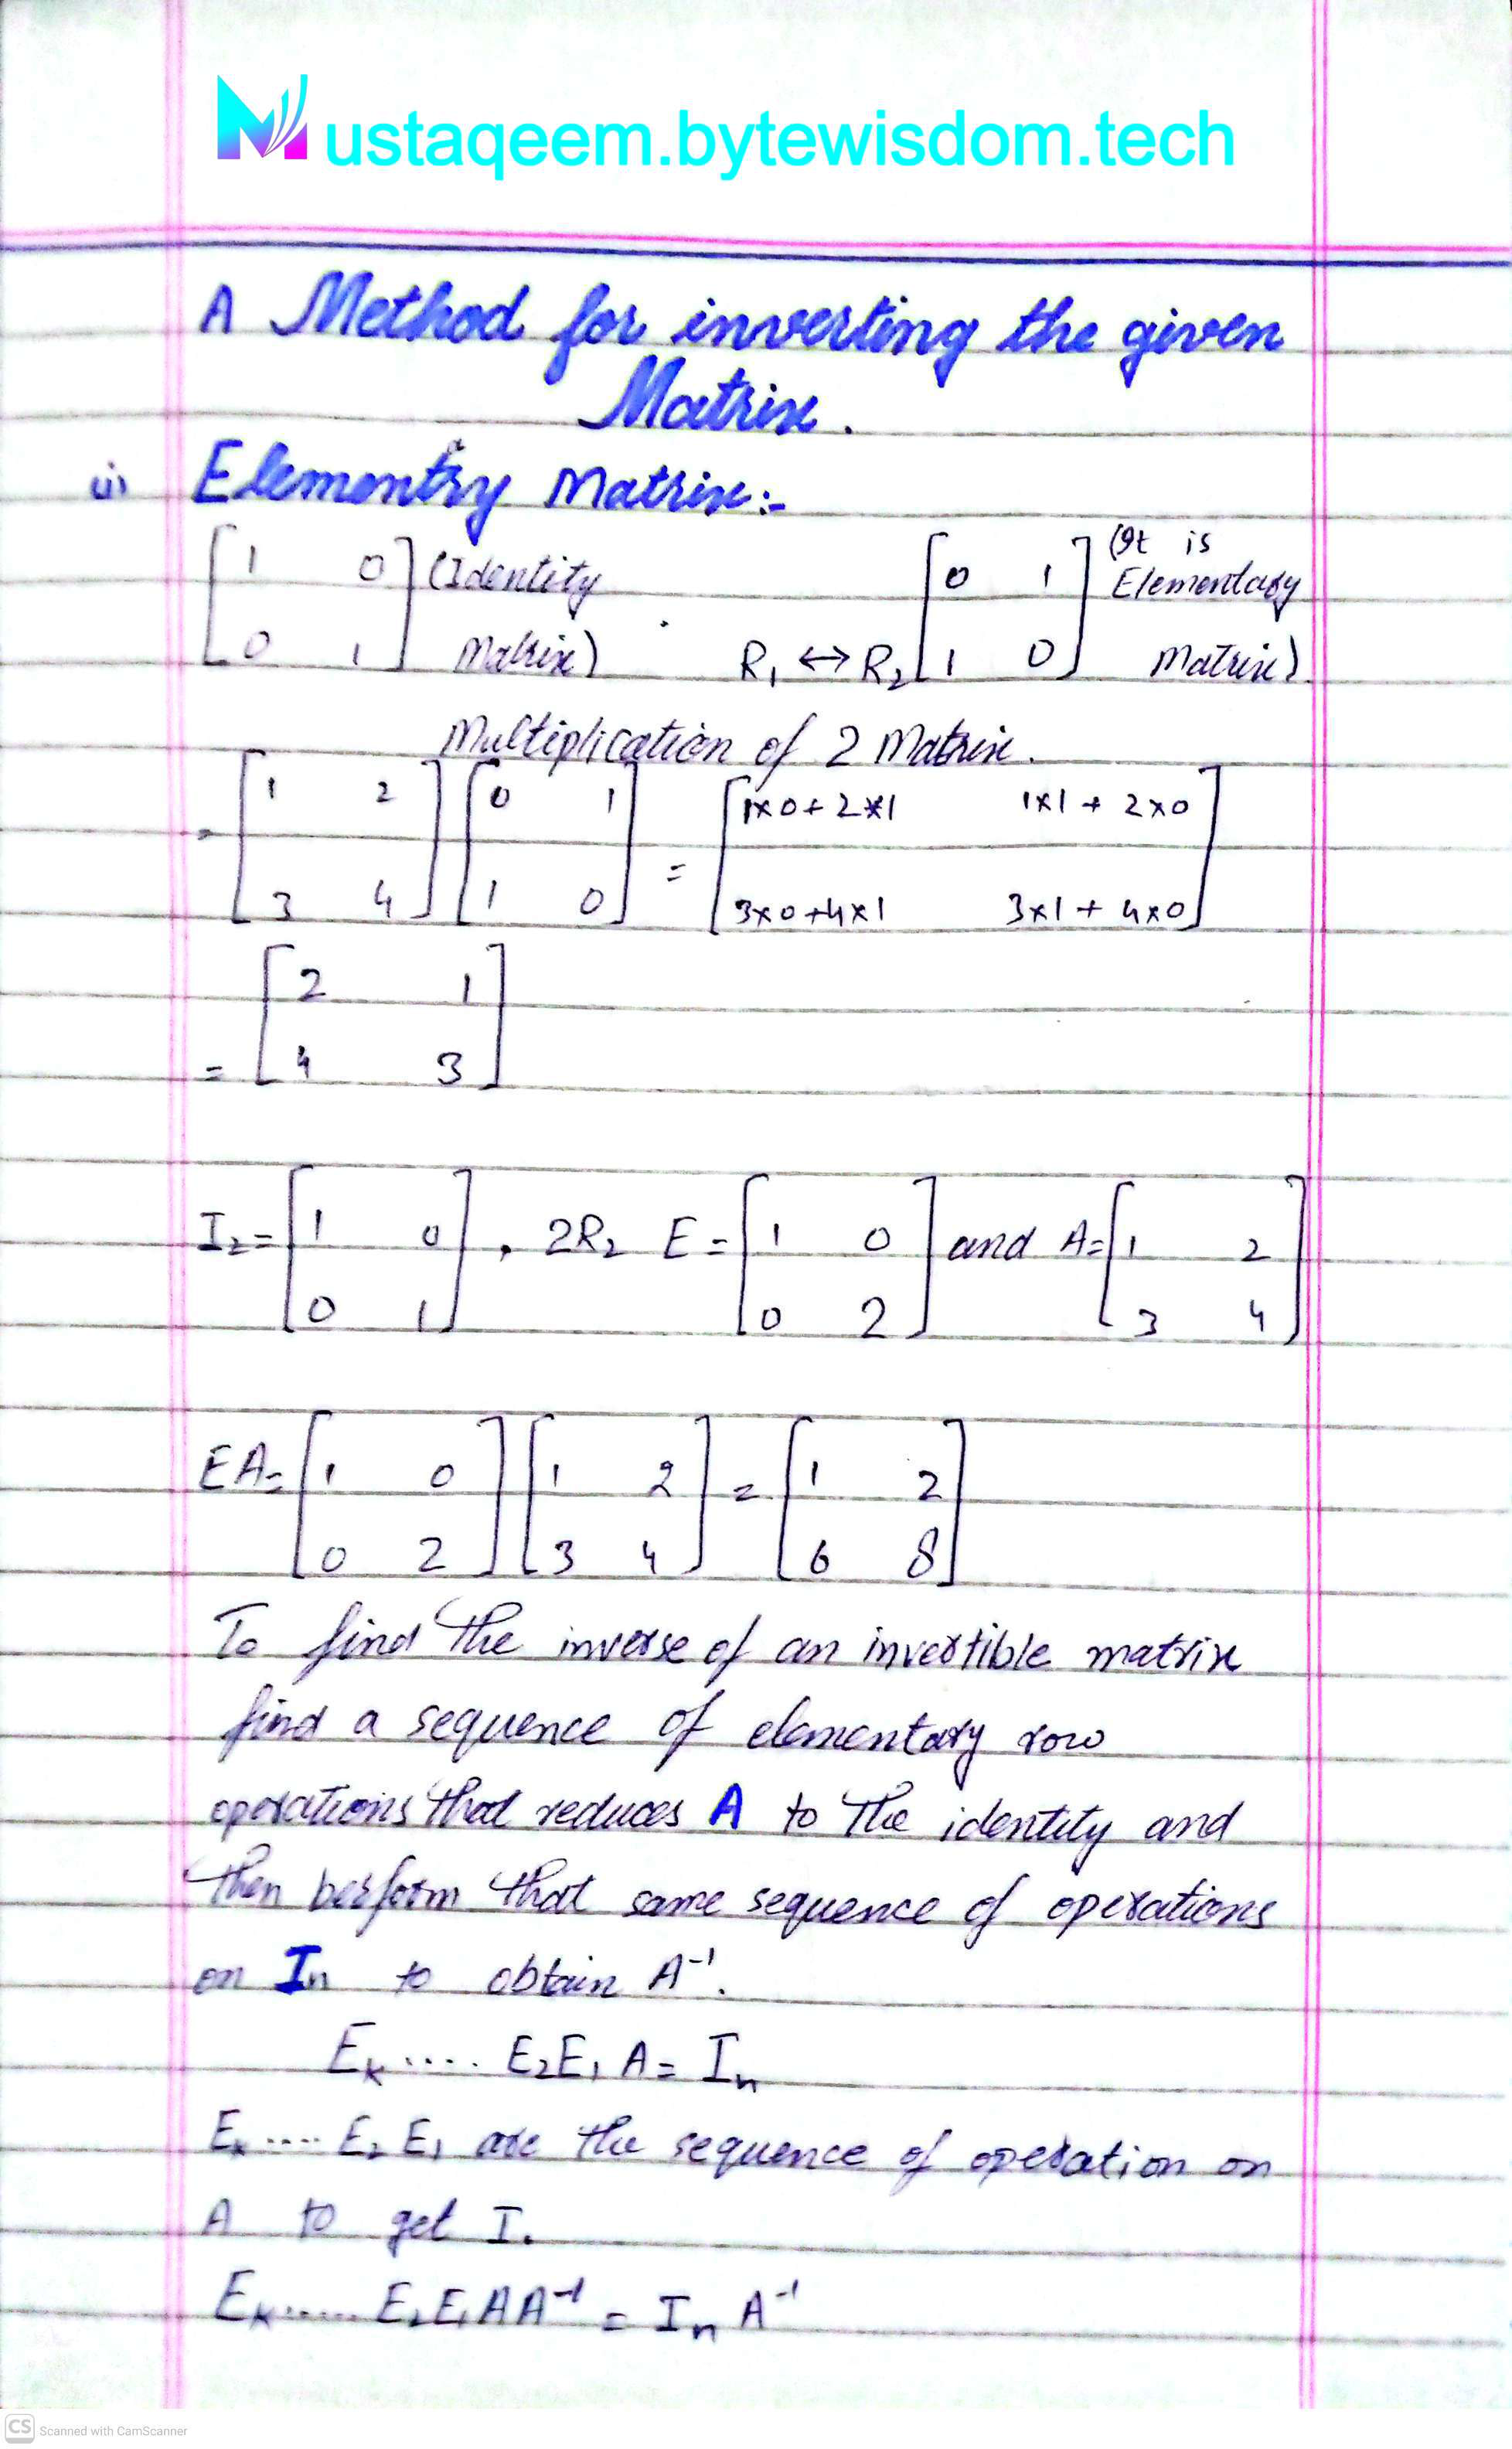 Mustaqeem.bytewisdom.tech
A Method for inverting the given
Matrix.
(i) Elementry Matrix:-
[1 0] (Identity [0 1] (It is Elementary
[0 1] Matrix) R₁ ↔ R₂ [1 0] Matrix)
Multiplication of 2 Matrix.
= [1 2] [0 1] = [1×0+2×1 1×1+2×0]
[3 4] [1 0] [3×0+4×1 3×1+4×0]
= [2 1]
[4 3]
I₂= [1 0] , 2R₂ E= [1 0] and A= [1 2]
[0 1] [0 2] [3 4]
EA= [1 0] [1 2] = [1 2]
[0 2] [3 4] [6 8]
To find the inverse of an invertible matrix
find a sequence of elementary row
operations that reduces A to The identity and
then perform that same sequence of operations
on In to obtain A⁻¹.
Eₖ..... E₂E₁ A = Iₙ
Eₖ..... E₂ E₁ are the sequence of operation on
A to get I.
Eₖ..... E₂E₁AA⁻¹ = Iₙ A⁻¹
CS Scanned with CamScanner